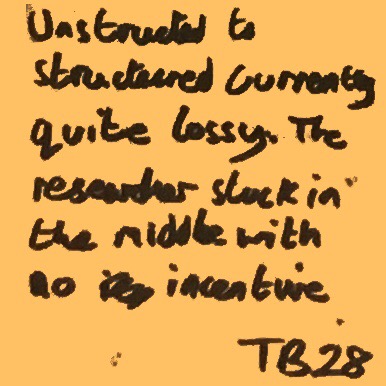 Unstructured to
structured currently
quite lossy. The
researcher stuck in
the middle with
no incentive
TB28